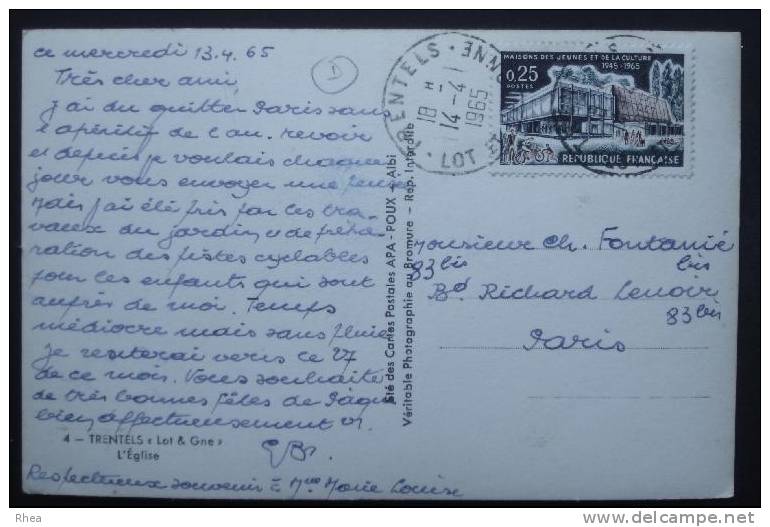 ce mercredi 13.4.65
Très cher ami,
j'ai du quitter Paris sans
l'apéritif de l'au.revoir
et depuis je voulais chaque
jour vous envoyer une
Mais j'ai été pris par les tra-
vaux du jardin, et de prépa-
ration des pistes cyclables
pour les enfants qui sont
auprès de moi. Temps
médiocre mais sans pluie
Je resterai vers le 27
de ce mois. Vous souhaite
de très bonnes fêtes de Pâques
bien affectueusement
4 - TRENTELS « Lot & Gne »
L'Église
Respectueux souvenir = Mme Marie Louise
Sté des Cartes Postales APA - POUX - Albi
Véritable Photographie au Bromure - Rep. Interdite
TRENTELS
18 H
14-4
1965
LOT ET
NNE
MAISONS DES JEUNES ET DE LA CULTURE
1945-1965
0,25
POSTES
REPUBLIQUE FRANÇAISE
Monsieur Ch. Fontanié
83 bis
bis
Bd Richard Lenoir
83 bis
Paris
Rhea
delcampe.net